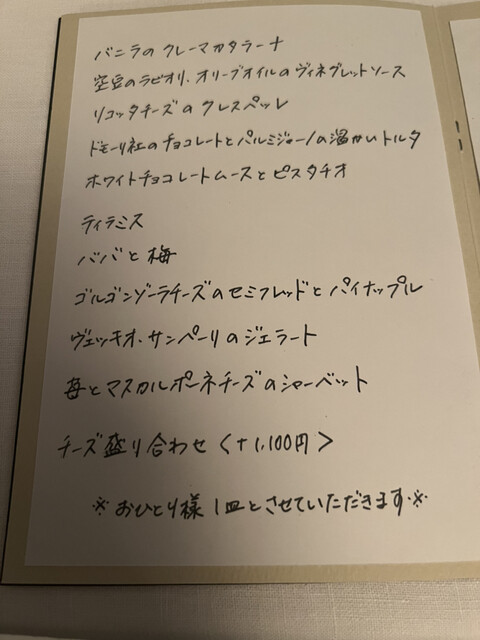 バニラのクレーマカタラーナ
空豆のラビオリ、オリーブオイルのヴィネグレットソース
リコッタチーズのクレスペッレ
ドモーリ社のチョコレートとパルミジャーノの温かいトルタ
ホワイトチョコレートムースとピスタチオ
ティラミス
ババと梅
ゴルゴンゾーラチーズのセミフレッドとパイナップル
ヴェッキオ・サンペーリのジェラート
苺とマスカルポーネチーズのシャーベット
チーズ盛り合わせ〈+1,100円〉
※おひとり様1皿とさせていただきます※